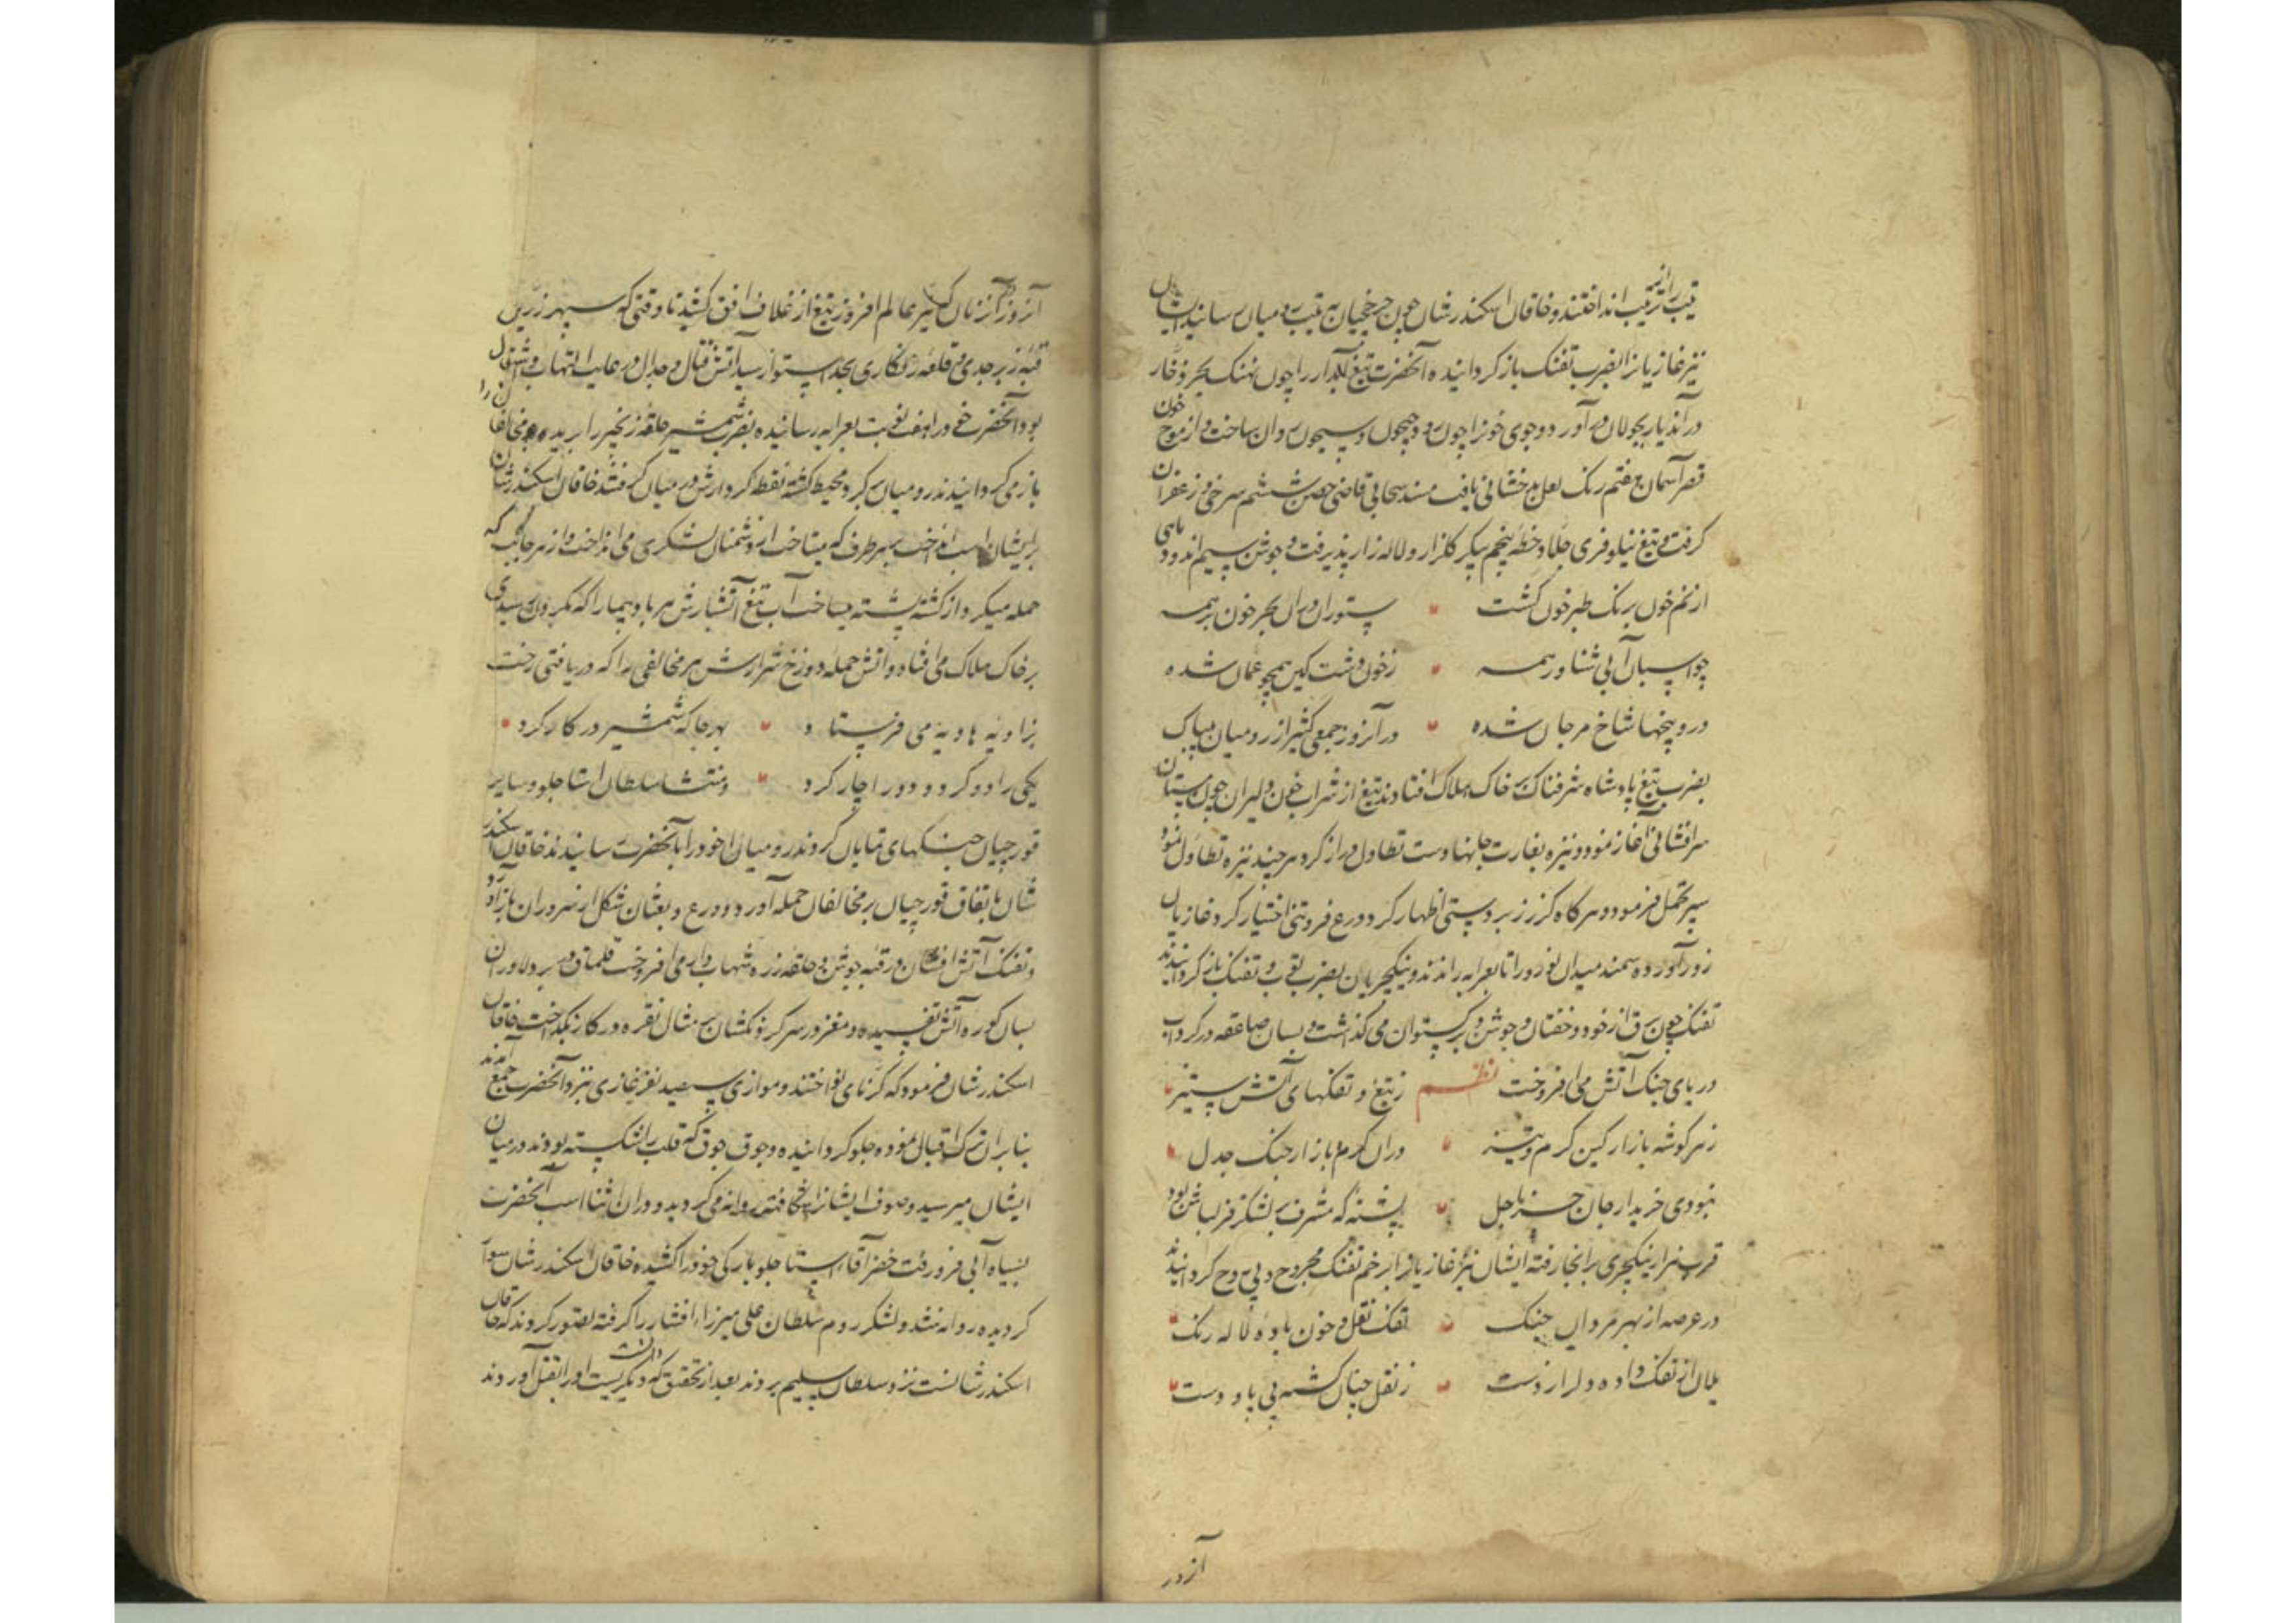 تیپ را از ترتیب انداختند و خاقان اسکندرشان چون چرخچیان به تیپ رومیان رسانید ایشان
نیز غازیانرا بضرب تفنک باز کردانیده آنحضرت تیغ آبدار را چون نهنک بحر ذخار
در آندیار بجولان در آورد و جوی خونرا چون رود جیحون و سیحون روان ساخت و از موج خون
قصر آسمان هفتم رنک لعل بدخشانی یافت مسند سحابی قاضی حصن ششم سرخی زعفران
کرفت و تیغ نیلوفری جلاد خطهٔ پنجم پیکر کلزار و لاله زار پذیرفت و جوشن سیم اندود ماهی
از نم خون برنک طبرخون کشت ستوران در آن بحر خون برهمه
چو اسبان آبی شناور همه ز خون دشت کین همچو عمان شده
درو پنجها شاخ مرجان شده در آنروز جمعی کثیر از رومیان بیباک
بضرب تیغ پادشاه شرفناک بر خاک هلاک افتادند تیغ از شراب خون دلیران چون مستان
سرافشانی آغاز نمود و نیزه بغارت جانها دست تطاول دراز کرد هر چند نیزه تطاول نمود
سپر تحمل فرمود و هر کاه کرز زبردستی اظهار کرد درع فروتنی اختیار کرد غازیان
زورآور ده سمند میدان نورد را تا بعرابه راندند و ینکیچریان بضرب توپ و تفنک باز کردانیدند
تفنک چون برق از خود و خفتان و جوشن و برکستوان می کذشت و بسان صاعقه در کرداب
دریای جنک آتش می افروخت نظم ز تیغ و تفنکهای آتش ستیز
ز هر کوشه بازار کین کرم و تیز در آن کرم بازار جنک جدل
نبودی خریدار جان جز اجل پشتهٔ که مشرف بر لشکر قزلباش بود
قرب هزار ینکیچری بر انجا رفته ایشان نیز غازیانرا بزخم تفنک مجروح و بی روح کردانیدند
در عرصه از بهر مردان جنک تفک نقل و خون باده لاله رنک
یلان از تفنک داده دلرا ز دست ز نقل چنان کشته بی پا و دست
آنروز
آنروز از آن زمان که نیر عالم افروز تیغ از غلاف افق کشید تا وقتی که سپهر زرین
قبهٔ زبرجدی قلعه زنکاری بحد استوا رسید آتش قتال و جدال در غایت التهاب و اشتعال
بود آنحضرت خود را هفت نوبت بعرابه رسانیده بضرب شمشیر حلقه زنجیر را برید مخالفان را
باز می کردانیدند رومیان کرد محیط کشته نقطه کردارش در میان کرفتند خاقان اسکندرشان
بر ایشان اسب انداخت بهر طرف که میتاخت از دشمنان لشکری می انداخت و از هر جانب که
حمله میکرد از کشته پشته میساخت آب تیغ آتشبارش هر باد پیما را که بکردون رسیدی
بر خاک هلاک می افتاد و آتش حملهٔ دوزخ شرارش هر مخالفی را که دریافتی رخت
بزاویه هاویه می فرستاد بهر جا که شمشیر در کار کرد
یکی را دو کرد و دو را چار کرد و منتشا سلطان استاجلو و سایر
قورچیان جنکهای نمایان کردند رومیان خود را بآنحضرت رسانیدند خاقان اسکندر
شان باتفاق قورچیان بر مخالفان حمله آورد
و تفنک آتش افشان در قبهٔ جوشن و حلقه زره شهاب وار می افروخت قلماق در سر دلاوران
بسان کوره آتش تفسیده و مغز در سر کردنکشان بر مثال نقره در کار بکداخت خاقان
اسکندرشان فرمود که کرنای نواختند و موازی سیصد نفر غازی نزد آنحضرت جمع آمدند
بنابر آن ترک قتال نموده جلو کردانیده و جوق جوق که قلب را شکسته بودند در میان
ایشان میرسید و صوف ایشانرا شکافته روانه می کردید و در آن اثنا اسب آنحضرت
بسیاه آبی فرو رفت خضر آقاء استاجلو بارکی خود را کشیده خاقان اسکندرشان سوار
کردیده روانه شد و لشکر روم سلطان علی میرزاء افشار را کرفته تصور کردند که خاقان
اسکندرشانست نزد سلطان سلیم بردند بعد از تحقیق که دانست دیکریست اورا بقتل آوردند